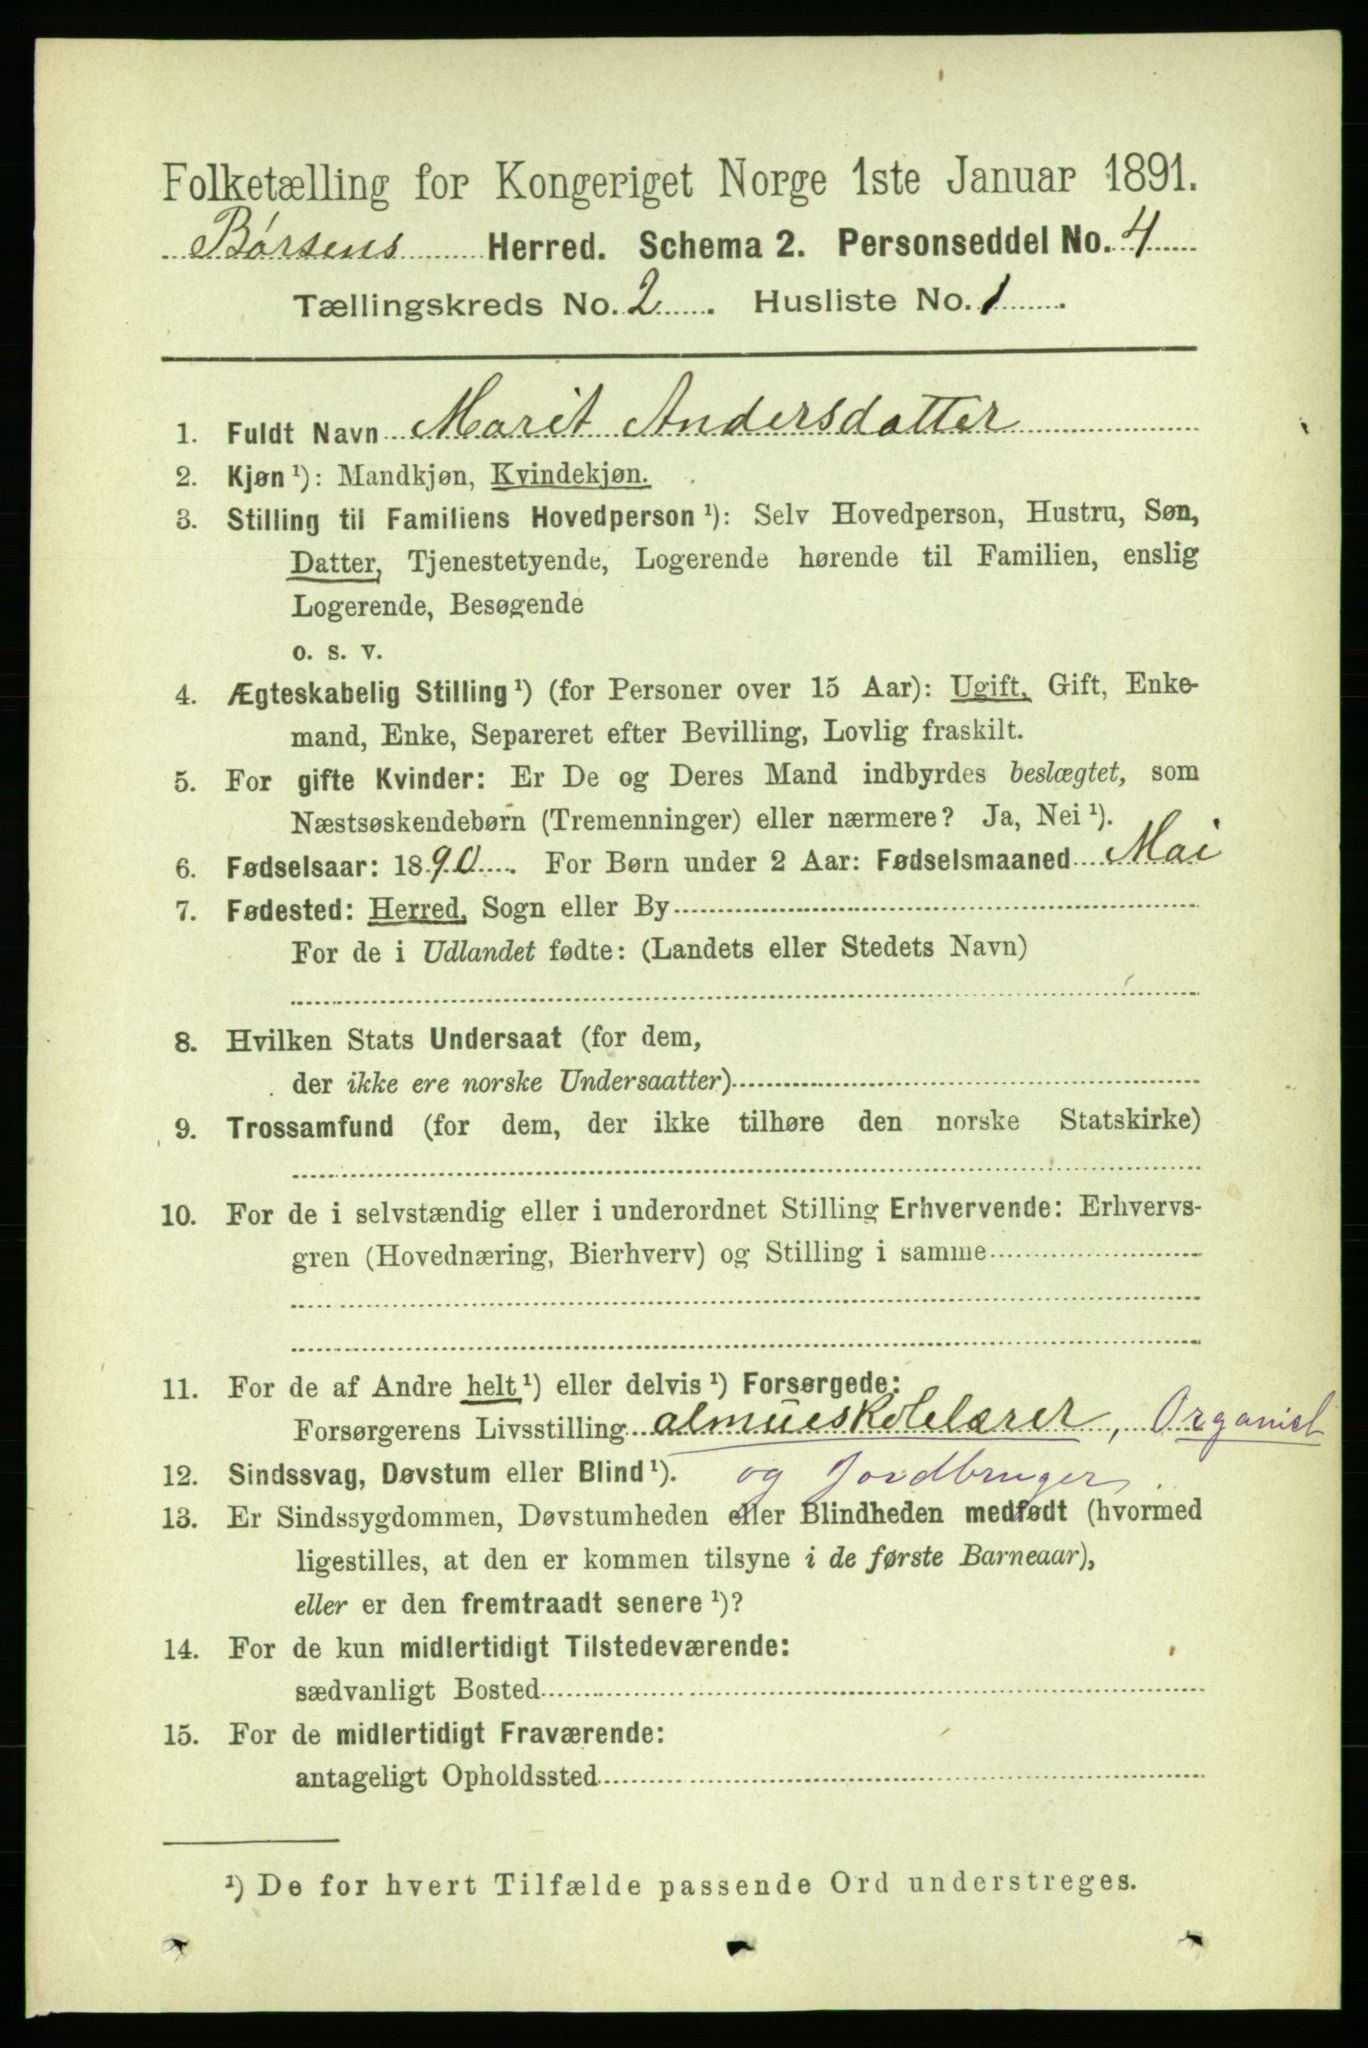 Folketælling for Kongeriget Norge 1ste Januar 1891.
Børsens Herred. Schema 2. Personseddel No. 4
Tællingskreds No. 2. Husliste No. 1.
1. Fuldt Navn Marit Andersdatter
2. Kjøn ¹): Mandkjøn, Kvindekjøn.
3. Stilling til Familiens Hovedperson ¹): Selv Hovedperson, Hustru, Søn,
Datter, Tjenestetyende, Logerende hørende til Familien, enslig
Logerende, Besøgende
o. s. v.
4. Ægteskabelig Stilling ¹) (for Personer over 15 Aar): Ugift, Gift, Enke-
mand, Enke, Separeret efter Bevilling, Lovlig fraskilt.
5. For gifte Kvinder: Er De og Deres Mand indbyrdes beslægtet, som
Næstsøskendebørn (Tremenninger) eller nærmere? Ja, Nei ¹).
6. Fødselsaar: 1890. For Børn under 2 Aar: Fødselsmaaned Mai
7. Fødested: Herred, Sogn eller By
For de i Udlandet fødte: (Landets eller Stedets Navn)
8. Hvilken Stats Undersaat (for dem,
der ikke ere norske Undersaatter)
9. Trossamfund (for dem, der ikke tilhøre den norske Statskirke)
10. For de i selvstændig eller i underordnet Stilling Erhvervende: Erhvervs-
gren (Hovednæring, Bierhverv) og Stilling i samme
11. For de af Andre helt ¹) eller delvis ¹) Forsørgede:
Forsørgerens Livsstilling almueskolelærer, Organist
12. Sindssvag, Døvstum eller Blind ¹). og Jordbruger.
13. Er Sindssygdommen, Døvstumheden eller Blindheden medfødt (hvormed
ligestilles, at den er kommen tilsyne i de første Barneaar),
eller er den fremtraadt senere ¹)?
14. For de kun midlertidigt Tilstedeværende:
sædvanligt Bosted
15. For de midlertidigt Fraværende:
antageligt Opholdssted
¹) De for hvert Tilfælde passende Ord understreges.